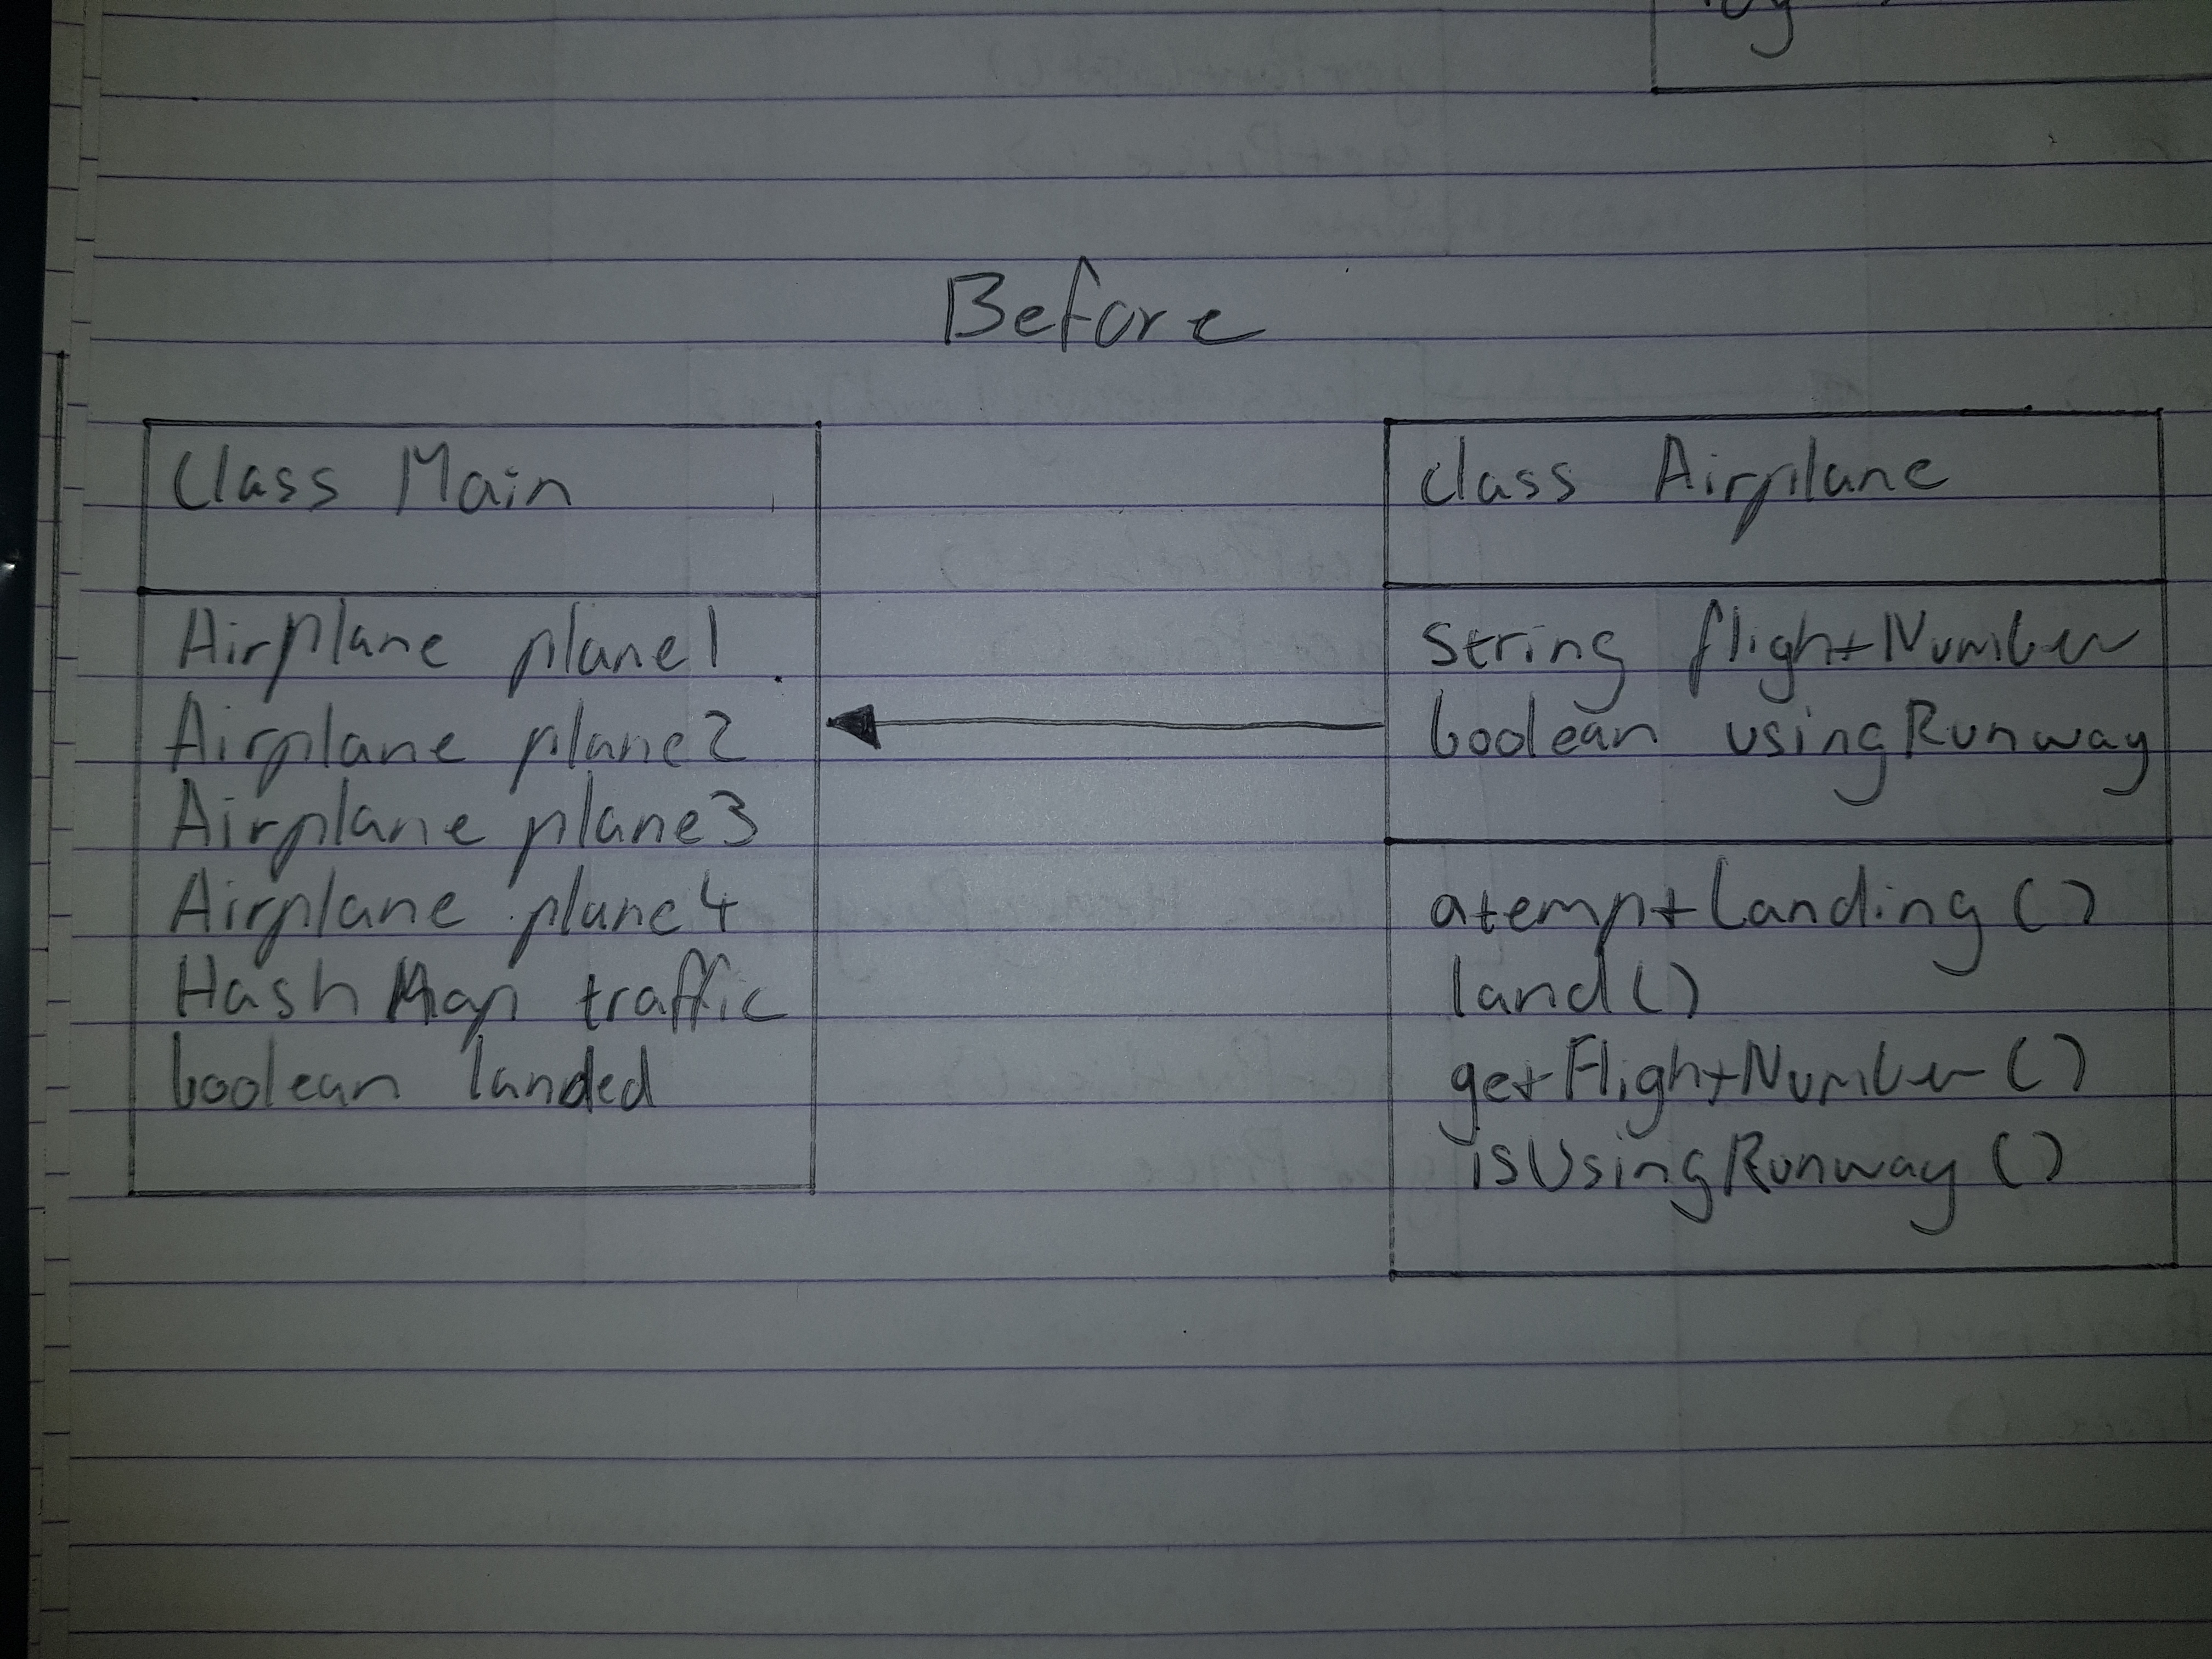 Before
Class Main
Airplane plane1
Airplane plane2
Airplane plane3
Airplane plane4
HashMap traffic
boolean landed
class Airplane
String flightNumber
boolean usingRunway
atemptLanding()
land()
getFlightNumber()
isUsingRunway()